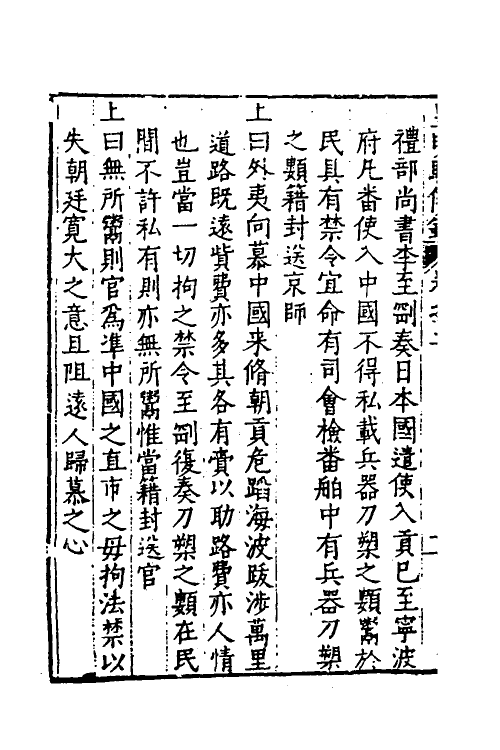 禮部尚書李至剛奏日本國遣使入貢已至寧波
府凡番使入中國不得私載兵器刀槊之類鬻於
民具有禁令宜命有司會檢番舶中有兵器刀槊
之類籍封送京師
上曰外夷向慕中國来脩朝貢危蹈海波跋涉萬里
道路既遠貲費亦多其各有賫以助路費亦人情
也豈當一切拘之禁令至剛復奏刀槊之類在民
間不許私有則亦無所鬻惟當籍封送官
上曰無所鬻則官爲准中國之直市之毋拘法禁以
失朝廷寬大之意且阻遠人歸慕之心